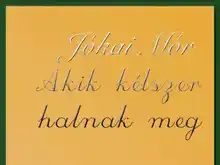 Jókai Mór
Akik kétszer
halnak meg